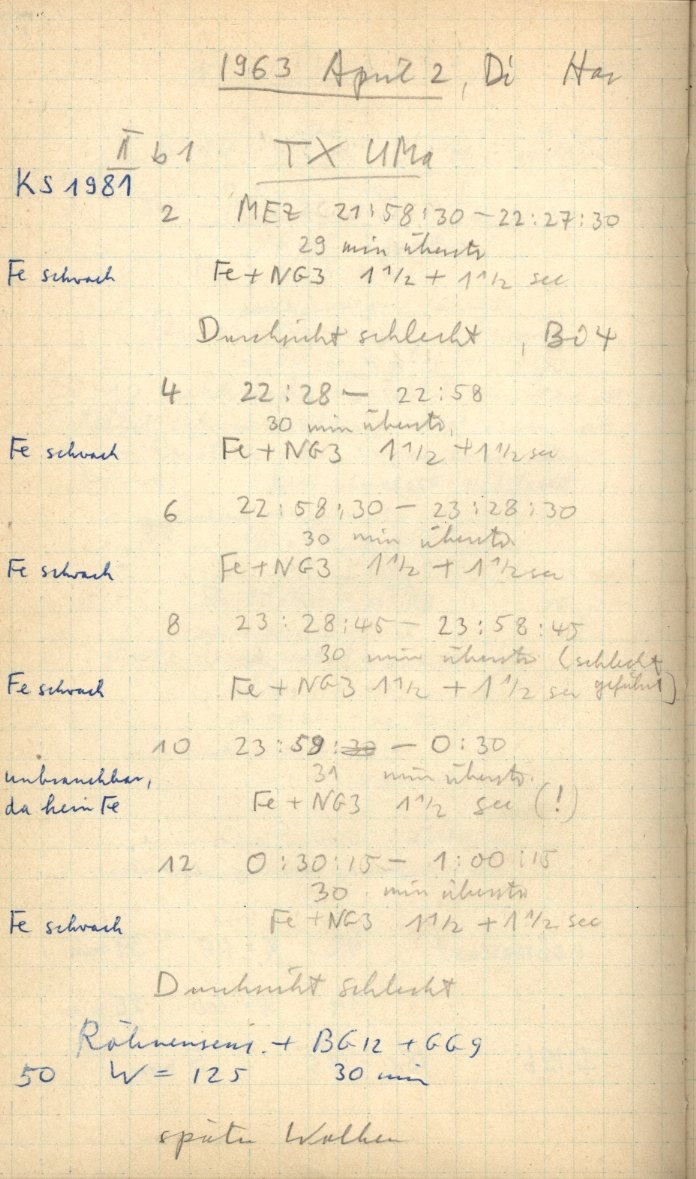 1963 April 2, Di Har
II b 1 TX UMa
KS 1981
2 MEZ 21:58:30 – 22:27:30
29 min überstr.
Fe schwach Fe + NG3 1 1/2 + 1 1/2 sec
Durchsicht schlecht,
4 22:28 – 22:58
30 min überstr.
Fe schwach Fe + NG3 1 1/2 + 1 1/2 sec
6 22:58:30 – 23:28:30
30 min überstr.
Fe schwach Fe + NG3 1 1/2 + 1 1/2 sec
8 23:28:45 – 23:58:45
30 min überstr. (schlecht
Fe schwach Fe + NG3 1 1/2 + 1 1/2 sec geführt)
10 23:59 – 0:30
31 min überstr.
unbrauchbar,
da kein Fe Fe + NG3 1 1/2 sec (!)
12 0:30:15 – 1:00:15
30 min überstr.
Fe schwach Fe + NG3 1 1/2 + 1 1/2 sec
Durchsicht schlecht
Röhrensens. + BG12 + GG9
50 W = 125 30 min
später Wolken